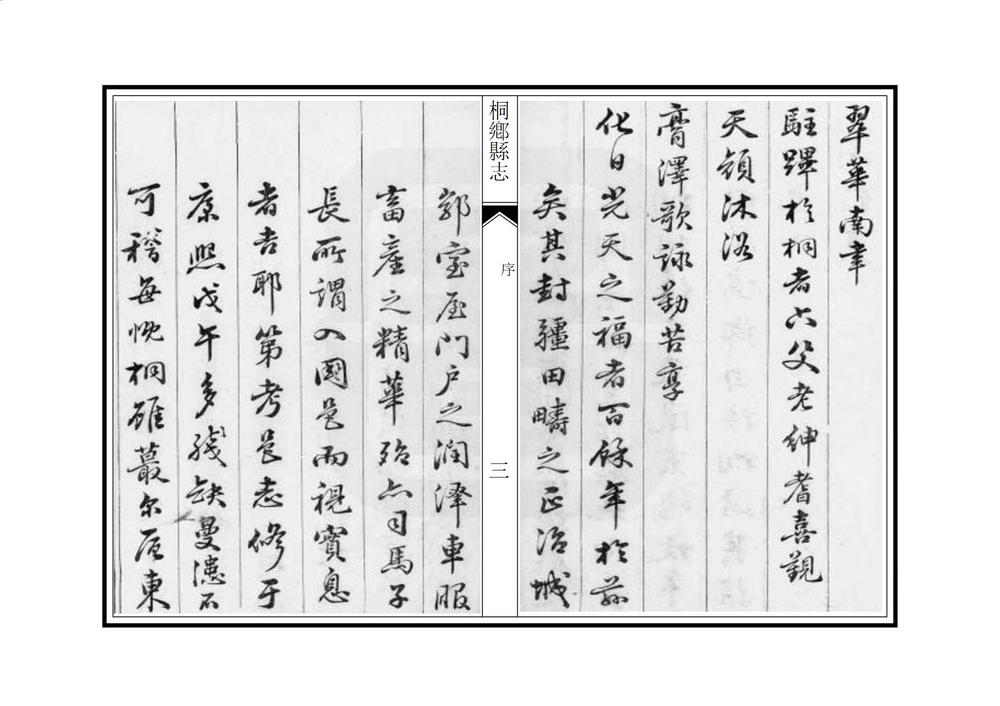 翠華南幸
駐蹕於桐者六父老紳耆喜覩
天顔沐浴
膏澤歌詠勤苦享
化日光天之福者百餘年於茲
矣其封疆田疇之正治城
桐鄉縣志
序
三
郭室屋門戶之潤澤車服
畜產之精華殆亦司馬子
長所謂入國邑而視實息
者吉耶第考邑志修于
康熙戊午多殘缺曼漶不
可稽每忱桐雖蕞尔居東